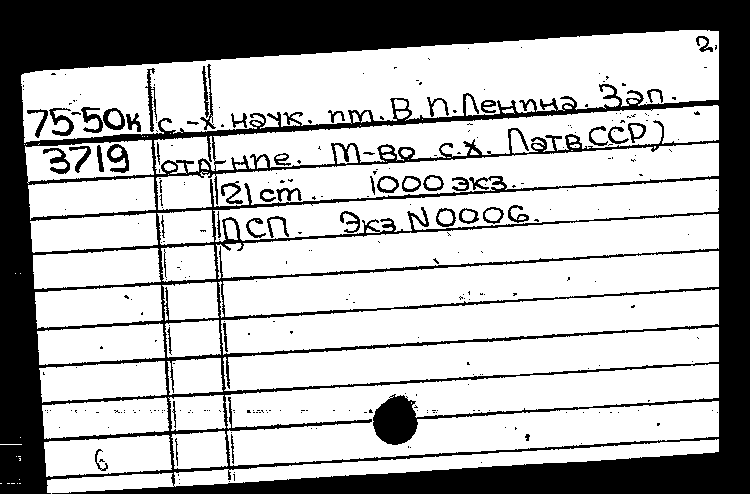 2.
75-50к с.-х. наук. им. В.И. Ленина. Зап.
3719 отд-ние. М-во с.х. Латв.ССР)
21 ст. 1000 экз.
ДСП. Экз. N0006.
6